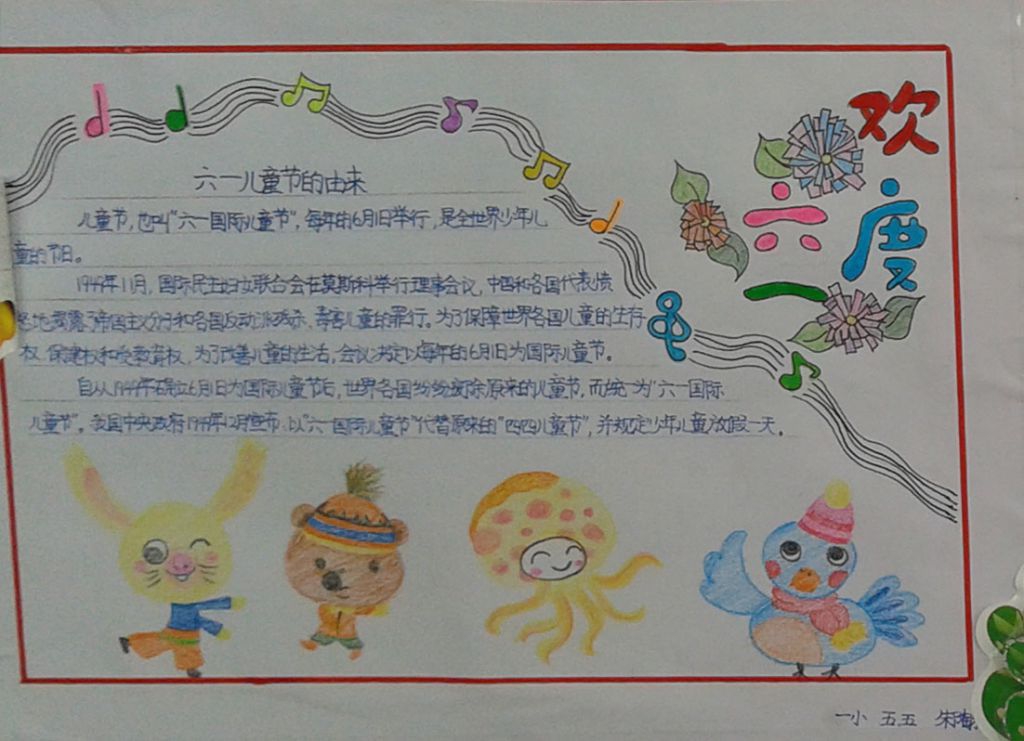 欢度六一
六一儿童节的由来
儿童节,也叫"六一国际儿童节",每年的6月1日举行,是全世界少年儿
童的节日。
1949年11月,国际民主妇女联合会在莫斯科举行理事会议,中国和各国代表愤
怒地揭露了帝国主义分子和各国反动派残杀、毒害儿童的罪行。为了保障世界各国儿童的生存
权、保健权和受教育权,为了改善儿童的生活,会议决定以每年的6月1日为国际儿童节。
自从1949年确立6月1日为国际儿童节后,世界各国纷纷废除原来的儿童节,而统一为"六一国际
儿童节"。我国中央政府1949年12月宣布,以"六一国际儿童节"代替原来的"四四儿童节",并规定少年儿童放假一天。
一小 五.五 朱